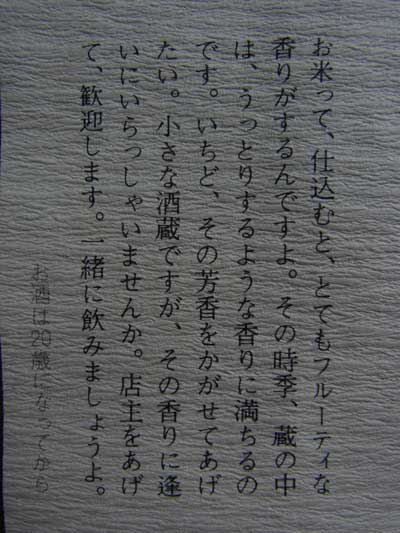 お米って、仕込むと、とてもフルーティな
香りがするんですよ。その時季、蔵の中
は、うっとりするような香りに満ちるの
です。いちど、その芳香をかがせてあげ
たい。小さな酒蔵ですが、その香りに逢
いにいらっしゃいませんか。店主をあげ
て、歓迎します。一緒に飲みましょうよ。
お酒は20歳になってから